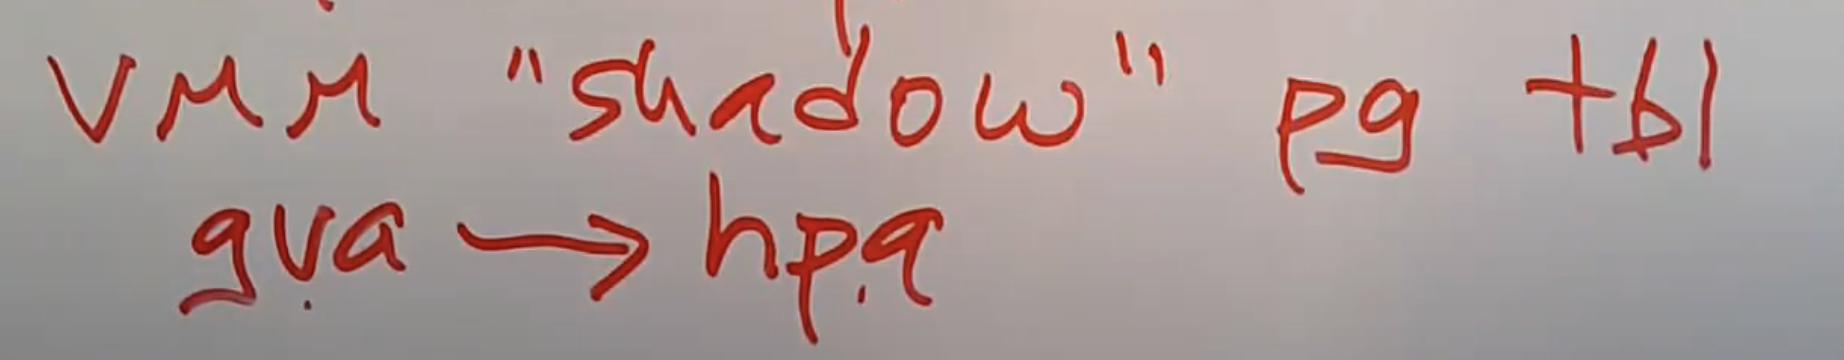 VMM "shadow" pg tbl
gva → hpa